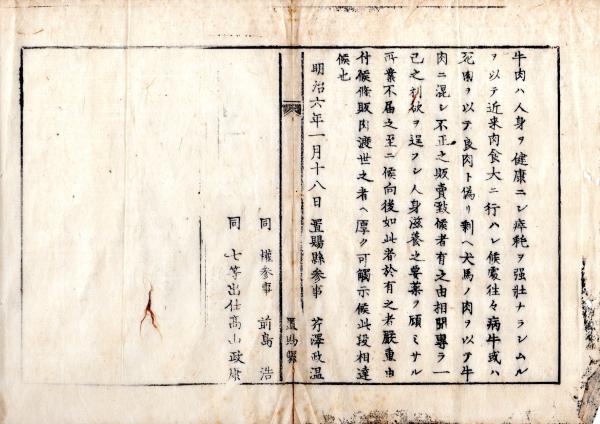 牛肉ハ人身ヲ健康ニシ瘁耗ヲ强壮ナランムル
ヲ以テ近来肉食大ニ行ハレ候處往々病牛或ハ
死肉ヲ以テ良肉ト偽リ剰ヘ犬馬ノ肉ヲ以テ牛
肉ニ混シ不正之販賣致候者有之由相聞專ラ一
己之利欲ヲ逞フシ人身滋養之要藥ヲ顧ミサル
所業不届之至ニ候向後如此者於有之者嚴重申
付候條販肉渡世之者ヘ厚ク可觸示候此段相達
候也
明治六年一月十八日 置賜縣参事 芹澤政温
置賜縣
同 權参事 前島 浩
同 七等出仕高山政康